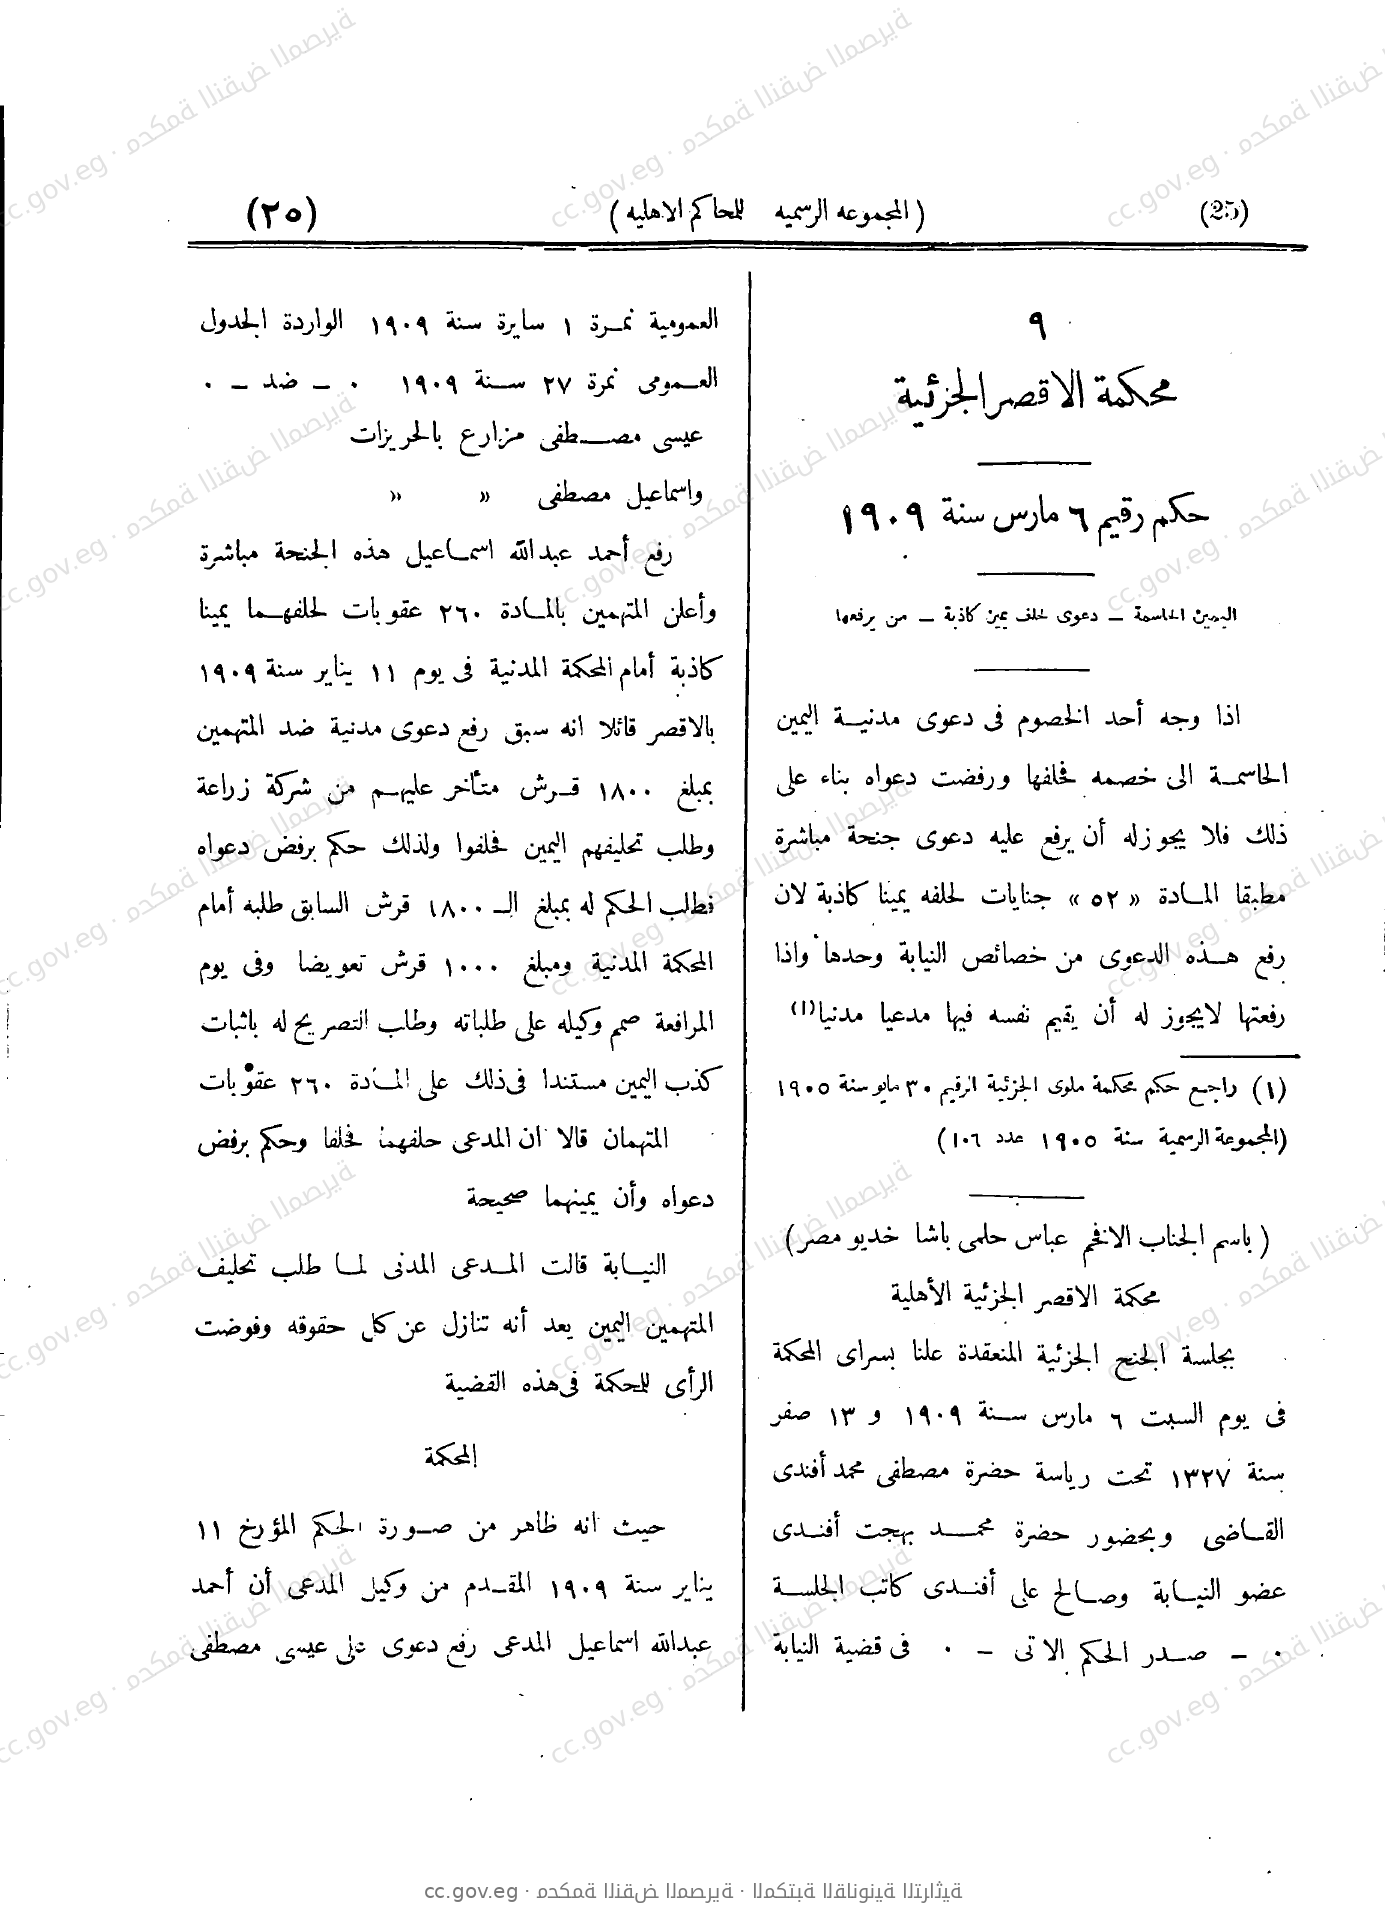 (25) (المجموعه الرسميه للمحاكم الاهليه) (٢٥)
٩
محكمة الاقصر الجزئية
حكم رقيم ٦ مارس سنة ١٩٠٩
اليمين الحاسمة – دعوى لحلف يمين كاذبة – من يرفعها
اذا وجه أحد الخصوم فى دعوى مدنيـة اليمين
الحاسمـة الى خصمه فحلفها ورفضت دعواه بناء على
ذلك فلا يجوزله أن يرفع عليه دعوى جنحة مباشرة
مطبقا المـادة « ٥٢ » جنايات لحلفه يمينا كاذبة لان
رفع هـذه الدعوى من خصائص النيابة وحدها واذا
رفعتها لايجوز له أن يقيم نفسه فيها مدعيا مدنيا(١)
(١) راجع حكم محكمة ملوى الجزئية الرقيم ٣٠ مايو سنة ١٩٠٥
(المجموعة الرسمية سنة ١٩٠٥ عدد ١٠٦)
(باسم الجناب الافخم عباس حلمى باشا خديو مصر)
محكمة الاقصر الجزئية الأهلية
بجلسة الجنح الجزئية المنعقدة علنا بسراى المحكمة
فى يوم السبت ٦ مارس سـنة ١٩٠٩ و ١٣ صفر
سنة ١٣٢٧ تحت رياسة حضرة مصطفى محمد أفندى
القـاضى وبحضور حضرة محمـد بهجت أفنـدى
عضو النيـابة وصـالح على أفنـدى كاتب الجلسـة
٠ – صـدر الحكم الاتى – ٠ فى قضية النيابة
العمومية نمـرة ١ سايرة سنة ١٩٠٩ الواردة الجدول
العـمومى نمرة ٢٧ سـنة ١٩٠٩ ٠ – ضد – ٠
عيسى مصـطفى مزارع بالحريزات
واسماعيل مصطفى » »
رفع أحمد عبدالله اسمـاعيل هذه الجنحة مباشرة
وأعلن المتهمين بالمـادة ٢٦٠ عقوبات لحلفهـما يمينا
كاذبة أمام المحكمة المدنية فى يوم ١١ يناير سنة ١٩٠٩
بالاقصر قائلا انه سبق رفع دعوى مدنية ضد المتهمين
بمبلغ ١٨٠٠ قـرش متأخر عليهـم من شركة زراعة
وطلب تحليفهم اليمين فحلفوا ولذلك حكم برفض دعواه
فطلب الحكم له بمبلغ الـ ١٨٠٠ قرش السابق طلبه أمام
المحكمة المدنية ومبلغ ١٠٠٠ قرش تعويضا وفى يوم
المرافعة صمم وكيله على طلباته وطلب التصريح له باثبات
كذب اليمين مستندا فى ذلك على المـادة ٢٦٠ عقوبات
المتهمان قالا ان المدعى حلفهما فحلفا وحكم برفض
دعواه وأن يمينهما صحيحة
النيـابة قالت المـدعى المدنى لمـا طلب تحليف
المتهمين اليمين يعد أنه تنازل عن كل حقوقه وفوضت
الرأى للمحكمة فى هذه القضية
المحكمة
حيث انه ظاهر من صـورة الحكم المؤرخ ١١
يناير سنة ١٩٠٩ المقـدم من وكيل المدعى أن أحمد
عبدالله اسماعيل المدعى رفع دعوى على عيسى مصطفى
cc.gov.eg · محكمة النقض المصرية · المكتبة القانونية التراثية